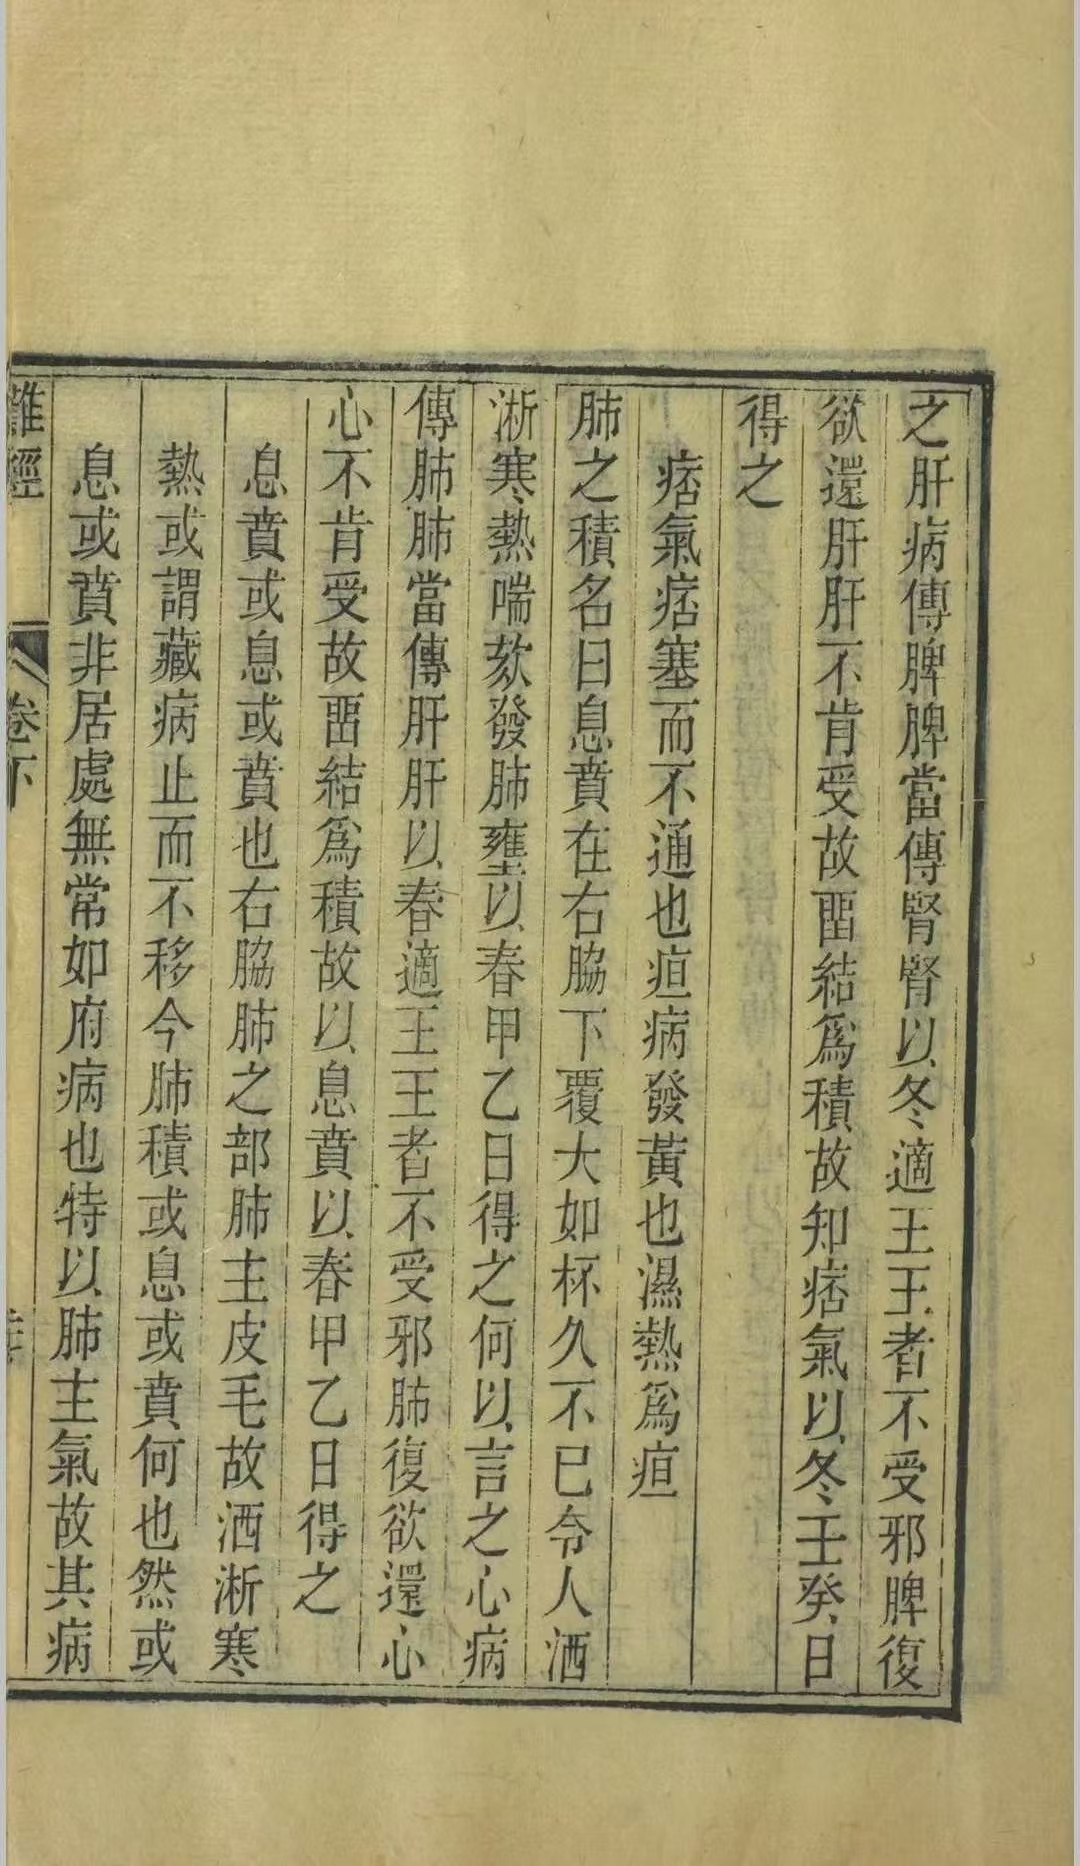 之肝病傳脾脾當傳腎腎以冬適王王者不受邪脾復
欲還肝肝不肯受故畱結爲積故知痞氣以冬壬癸日
得之
痞氣痞塞而不通也疸病發黃也濕熱爲疸
肺之積名曰息賁在右脇下覆大如杯久不已令人洒
淅寒熱喘欬發肺壅以春甲乙日得之何以言之心病
傳肺肺當傳肝肝以春適王王者不受邪肺復欲還心
心不肯受故畱結爲積故以息賁以春甲乙日得之
息賁或息或賁也右脇肺之部肺主皮毛故洒淅寒
熱或謂藏病止而不移今肺積或息或賁何也然或
息或賁非居處無常如府病也特以肺主氣故其病
難經 卷下